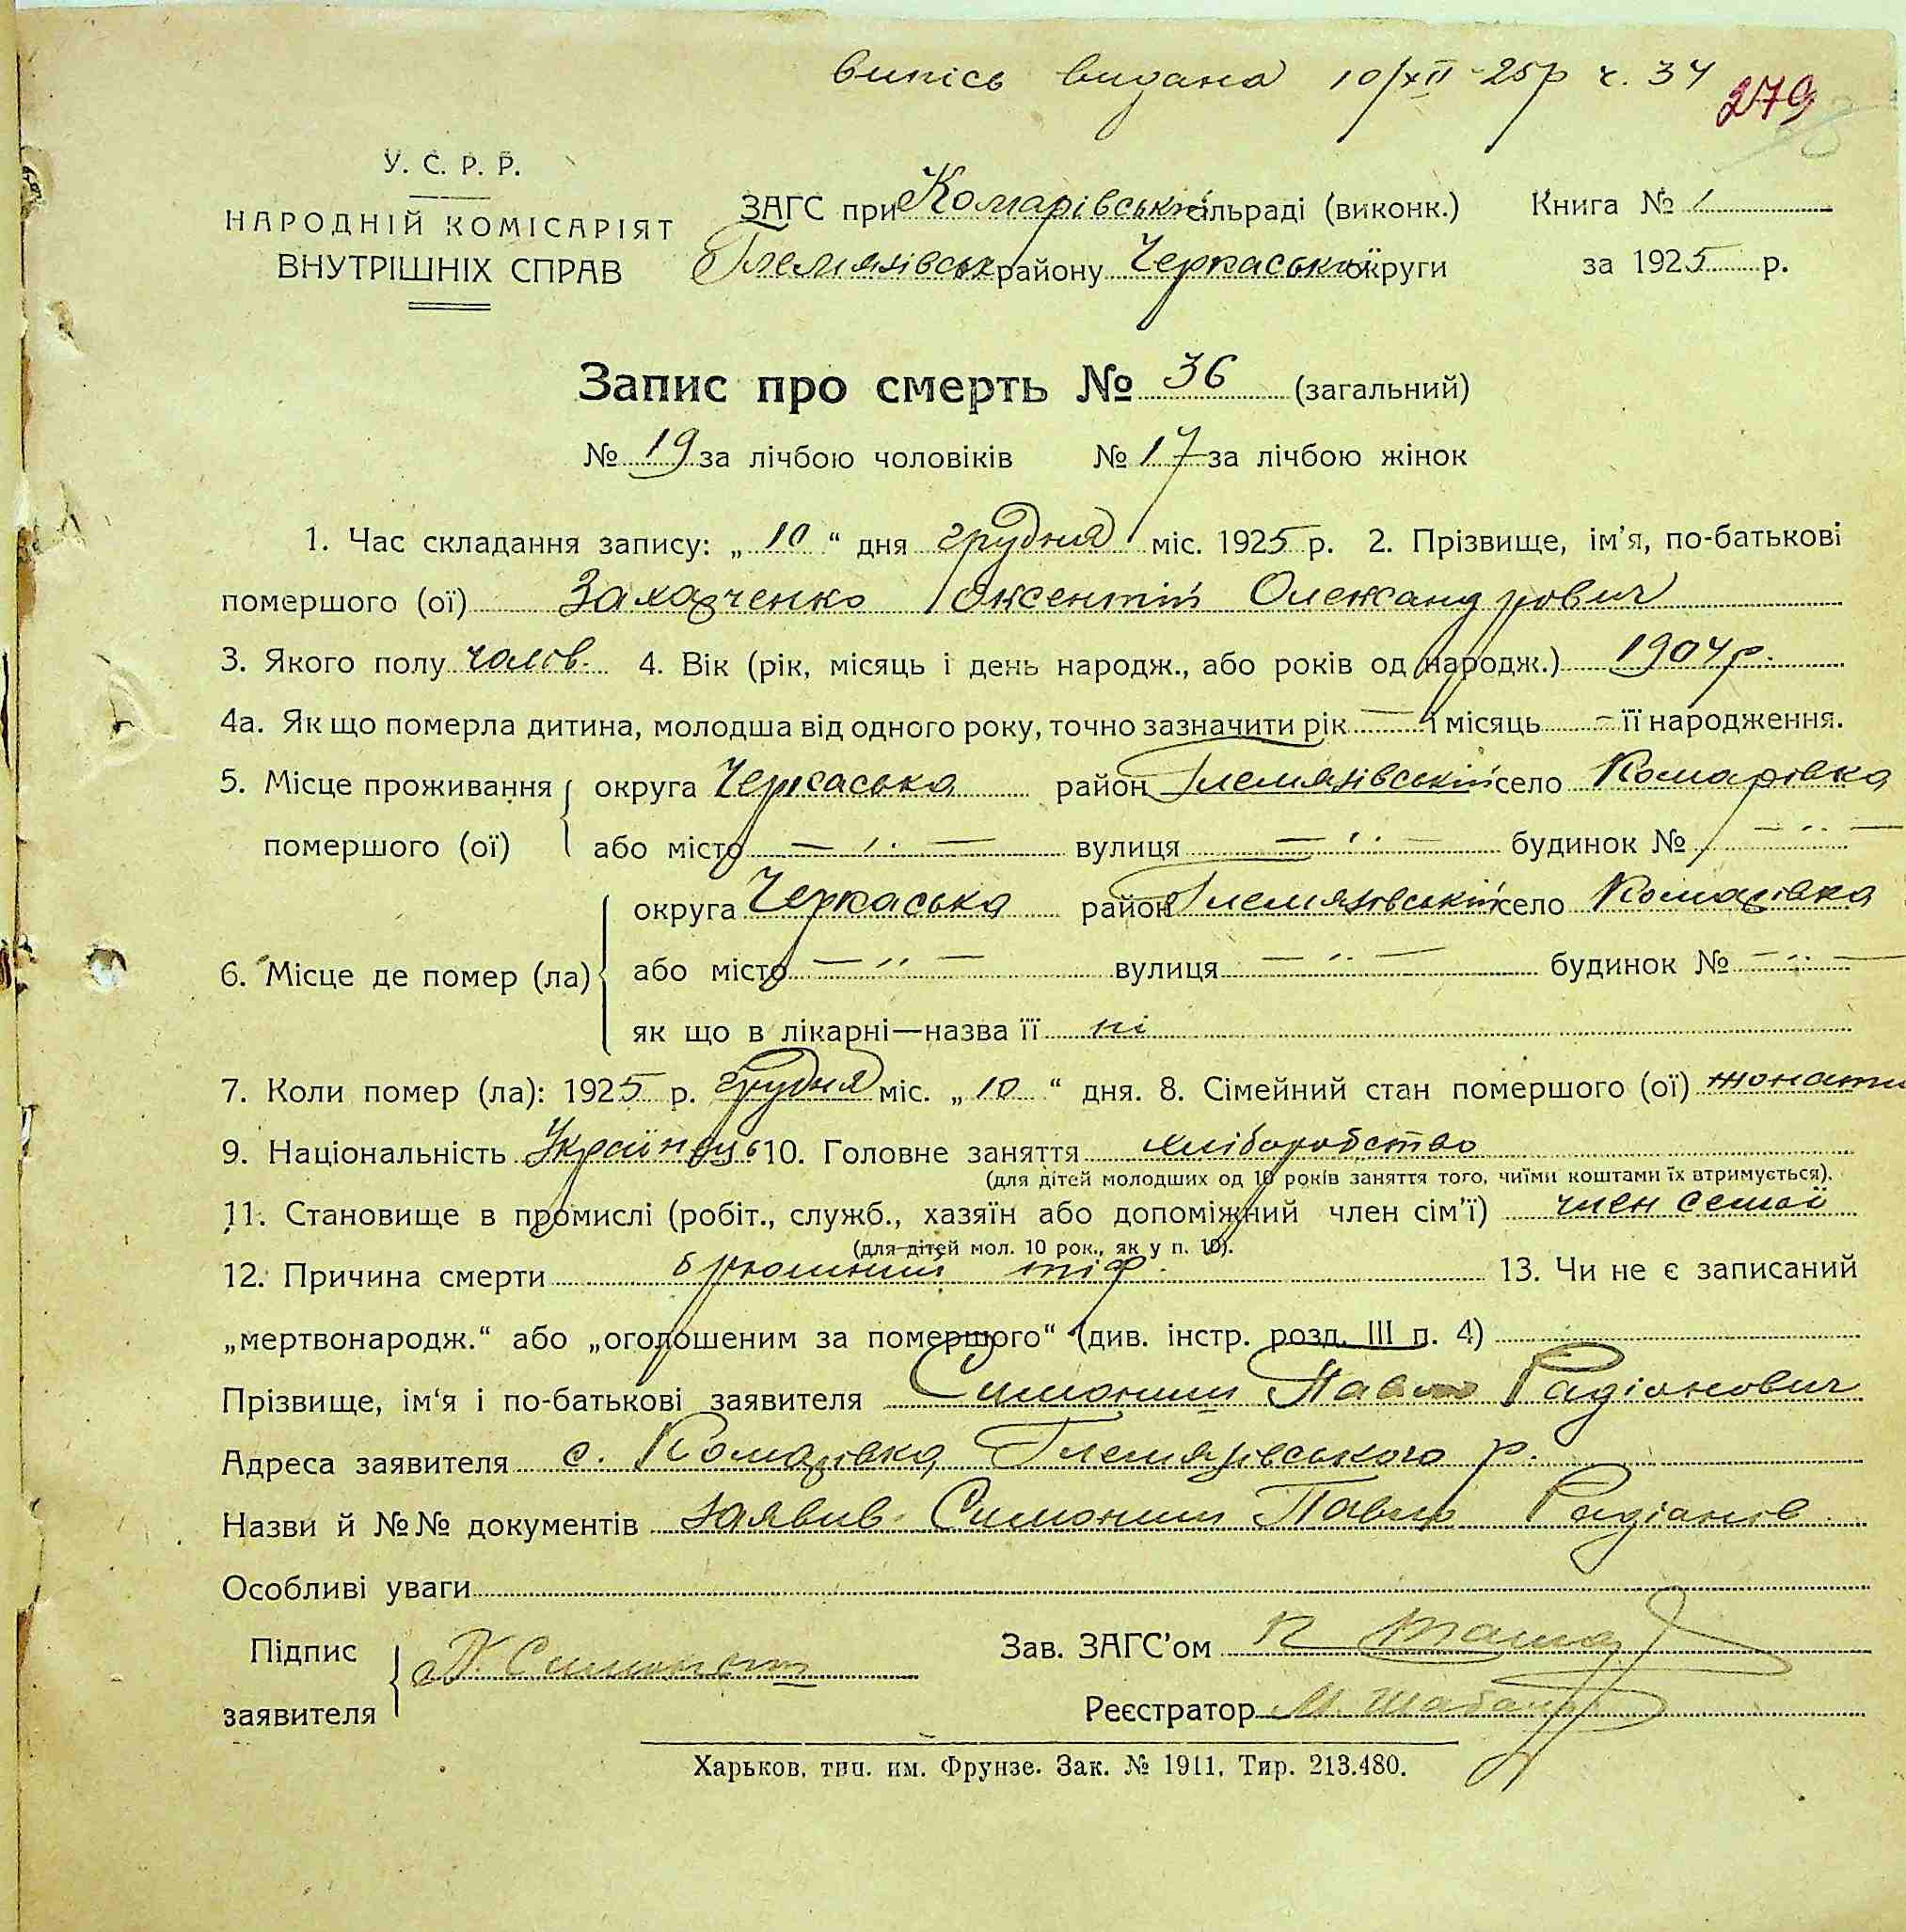 випісь видана 10/XII-25р ч. 34
279
У. С. Р. Р.
НАРОДНІЙ КОМІСАРІЯТ
ВНУТРІШНІХ СПРАВ
ЗАГС при Комарівській сільраді (виконк.)
Гельмязівськ району Черкаської округи
Книга № 1
за 1925 р.
Запис про смерть № 36 (загальний)
№ 19 за лічбою чоловіків № 17 за лічбою жінок
1. Час складання запису: „ 10 “ дня грудня міс. 1925 р. 2. Прізвище, ім'я, по-батькові
помершого (ої) Захарченко Оксентій Олександрович
3. Якого полу чолов. 4. Вік (рік, місяць і день народж., або років од народж.) 1904 р.
4а. Як що померла дитина, молодша від одного року, точно зазначити рік — і місяць — її народження.
5. Місце проживання округа Черкаська район Гельмязівський село Комарівка
помершого (ої) або місто — „ — вулиця — „ — будинок № — „ —
округа Черкаська район Гельмязівський село Комарівка
6. Місце де помер (ла) або місто — „ — вулиця — „ — будинок № — „ —
як що в лікарні—назва її ні
7. Коли помер (ла): 1925 р. грудня міс. „ 10 “ дня. 8. Сімейний стан помершого (ої) жонати
9. Національність Українець 10. Головне заняття хліборобство
(для дітей молодших од 10 років заняття того, чиїми коштами їх втримується).
11. Становище в промислі (робіт., служб., хазяїн або допоміжний член сім'ї) член семьї
(для дітей мол. 10 рок., як у п. 10).
12. Причина смерти брюшний тіф. 13. Чи не є записаний
„мертвонародж.“ або „оголошеним за помершого“ (див. інстр. розд. III п. 4)
Прізвище, ім'я і по-батькові заявителя Симонин Павло Радіонович
Адреса заявителя с. Комарівка Гельмязівського р.
Назви й №№ документів заявив Симонин Павло Радіонов
Особливі уваги
Підпис
заявителя
Зав. ЗАГС'ом
Реєстратор М.
Харьков, тип. им. Фрунзе. Зак. № 1911, Тир. 213.480.